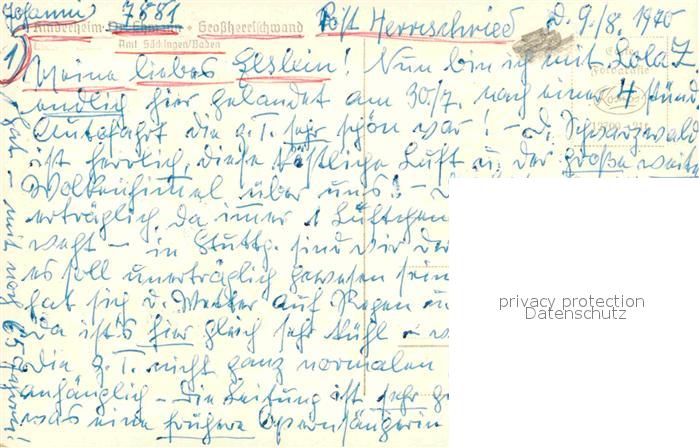 7881 Post Herrischried D. 9./8. 1970
Kinderheim Großherrischwand
Amt Säckingen/Baden
1) Meine liebes Elslein! Nun bin ich mit Lola Z.
endlich hier gelandet am 30./7. nach einer 4 stünd
Autofahrt die z. T. sehr schön war! - D. Schwarzwald
ist herrlich, diese köstliche Luft u. der große weite
Wolkenhimmel über uns! -
erträglich, da immer 1 Lüftchen
weht - in Stuttg. sind wir
es soll unerträglich gewesen sein
hat sich d. Wetter auf Regen
da ist's hier gleich sehr kühl -
die z. T. nicht ganz normalen
anhänglich - die Leitung ist sehr
was eine frühere Opernsängerin
mit 65 Jahren!
privacy protection
Datenschutz